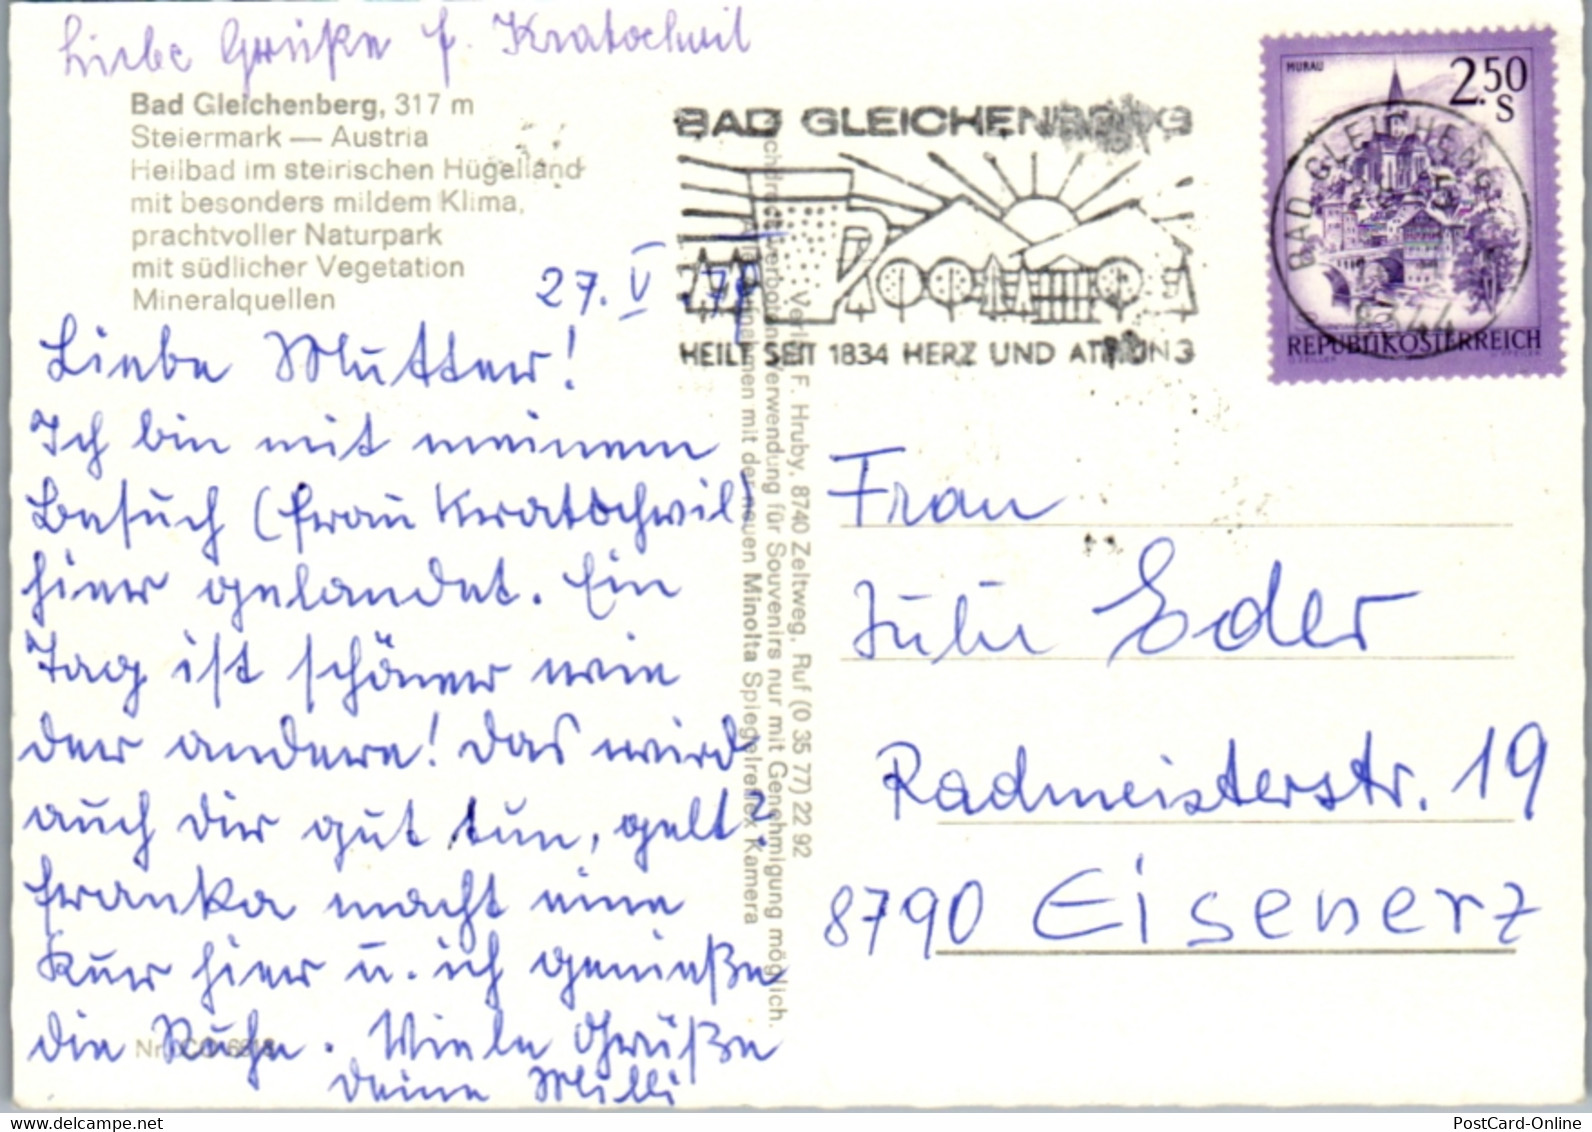 Liebe Grüße f. Kratochwil
Bad Gleichenberg, 317 m
Steiermark — Austria
Heilbad im steirischen Hügelland
mit besonders mildem Klima,
prachtvoller Naturpark
mit südlicher Vegetation
Mineralquellen
27. V
Liebe Mutter!
Ich bin mit meinem
Besuch (Frau Kratochwil)
hier gelandet. Ein
Tag ist schöner wie
der andere! Das wird
auch dir gut tun, gelt?
Franka macht eine
Kur hier u. ich genieße
die Ruhe. Viele Grüße
deine Milli
BAD GLEICHENBERG
HEILT SEIT 1834 HERZ UND ATMUNG
MURAU
2.50
S
REPUBLIK ÖSTERREICH
BAD GLEICHENB
8344
F. Hruby, 8740 Zeltweg, Ruf (0 35 77) 22 92
Verwendung für Souvenirs nur mit Genehmigung möglich.
mit der neuen Minolta Spiegelreflex Kamera
Frau
Juli Eder
Radmeisterstr. 19
8790 Eisenerz
Nr.
PostCard-Online